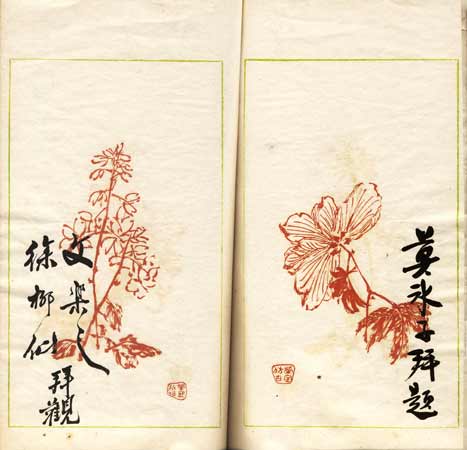 莫冰子拜題
文樂之
徐柳仙拜觀